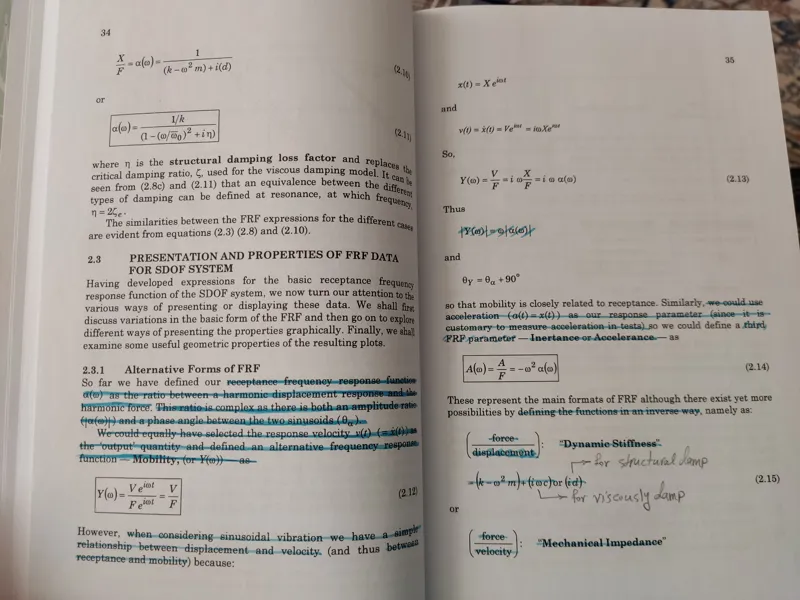 34
X/F = α(ω) = 1/((k − ω² m) + i(d)) (2.10)
or
α(ω) = (1/k)/((1 − (ω/ω̄₀)² + iη) (2.11)
where η is the structural damping loss factor and replaces the
critical damping ratio, ζ, used for the viscous damping model. It can be
seen from (2.8c) and (2.11) that an equivalence between the different
types of damping can be defined at resonance, at which frequency,
η = 2ζₑ.
The similarities between the FRF expressions for the different cases
are evident from equations (2.3) (2.8) and (2.10).
2.3 PRESENTATION AND PROPERTIES OF FRF DATA
FOR SDOF SYSTEM
Having developed expressions for the basic receptance frequency
response function of the SDOF system, we now turn our attention to the
various ways of presenting or displaying these data. We shall first
discuss variations in the basic form of the FRF and then go on to explore
different ways of presenting the properties graphically. Finally, we shall
examine some useful geometric properties of the resulting plots.
2.3.1 Alternative Forms of FRF
So far we have defined our receptance frequency response function
α(ω) as the ratio between a harmonic displacement response and the
harmonic force. This ratio is complex as there is both an amplitude ratio
(|α(ω)|) and a phase angle between the two sinusoids (θα).
We could equally have selected the response velocity v(t) (= ẋ(t)) as
the 'output' quantity and defined an alternative frequency response
function — Mobility, (or Y(ω)) — as
Y(ω) = V e^{iωt}/F e^{iωt} = V/F (2.12)
However, when considering sinusoidal vibration we have a simple
relationship between displacement and velocity. (and thus between
receptance and mobility) because:
35
x(t) = X e^{iωt}
and
v(t) = ẋ(t) = Ve^{iωt} = iωXe^{iωt}
So,
Y(ω) = V/F = i ω X/F = i ω α(ω) (2.13)
Thus
|Y(ω)| = ω|α(ω)|
and
θY = θα + 90°
so that mobility is closely related to receptance. Similarly, we could use
acceleration (a(t) = ẍ(t)) as our response parameter (since it is
customary to measure acceleration in tests) so we could define a third
FRF parameter — Inertance or Accelerance — as
A(ω) = A/F = −ω² α(ω) (2.14)
These represent the main formats of FRF although there exist yet more
possibilities by defining the functions in an inverse way, namely as:
(force/displacement): "Dynamic Stiffness"
for structural damp
= (k − ω² m) + (iωc) or (id) (2.15)
for viscously damp
or
(force/velocity): "Mechanical Impedance"